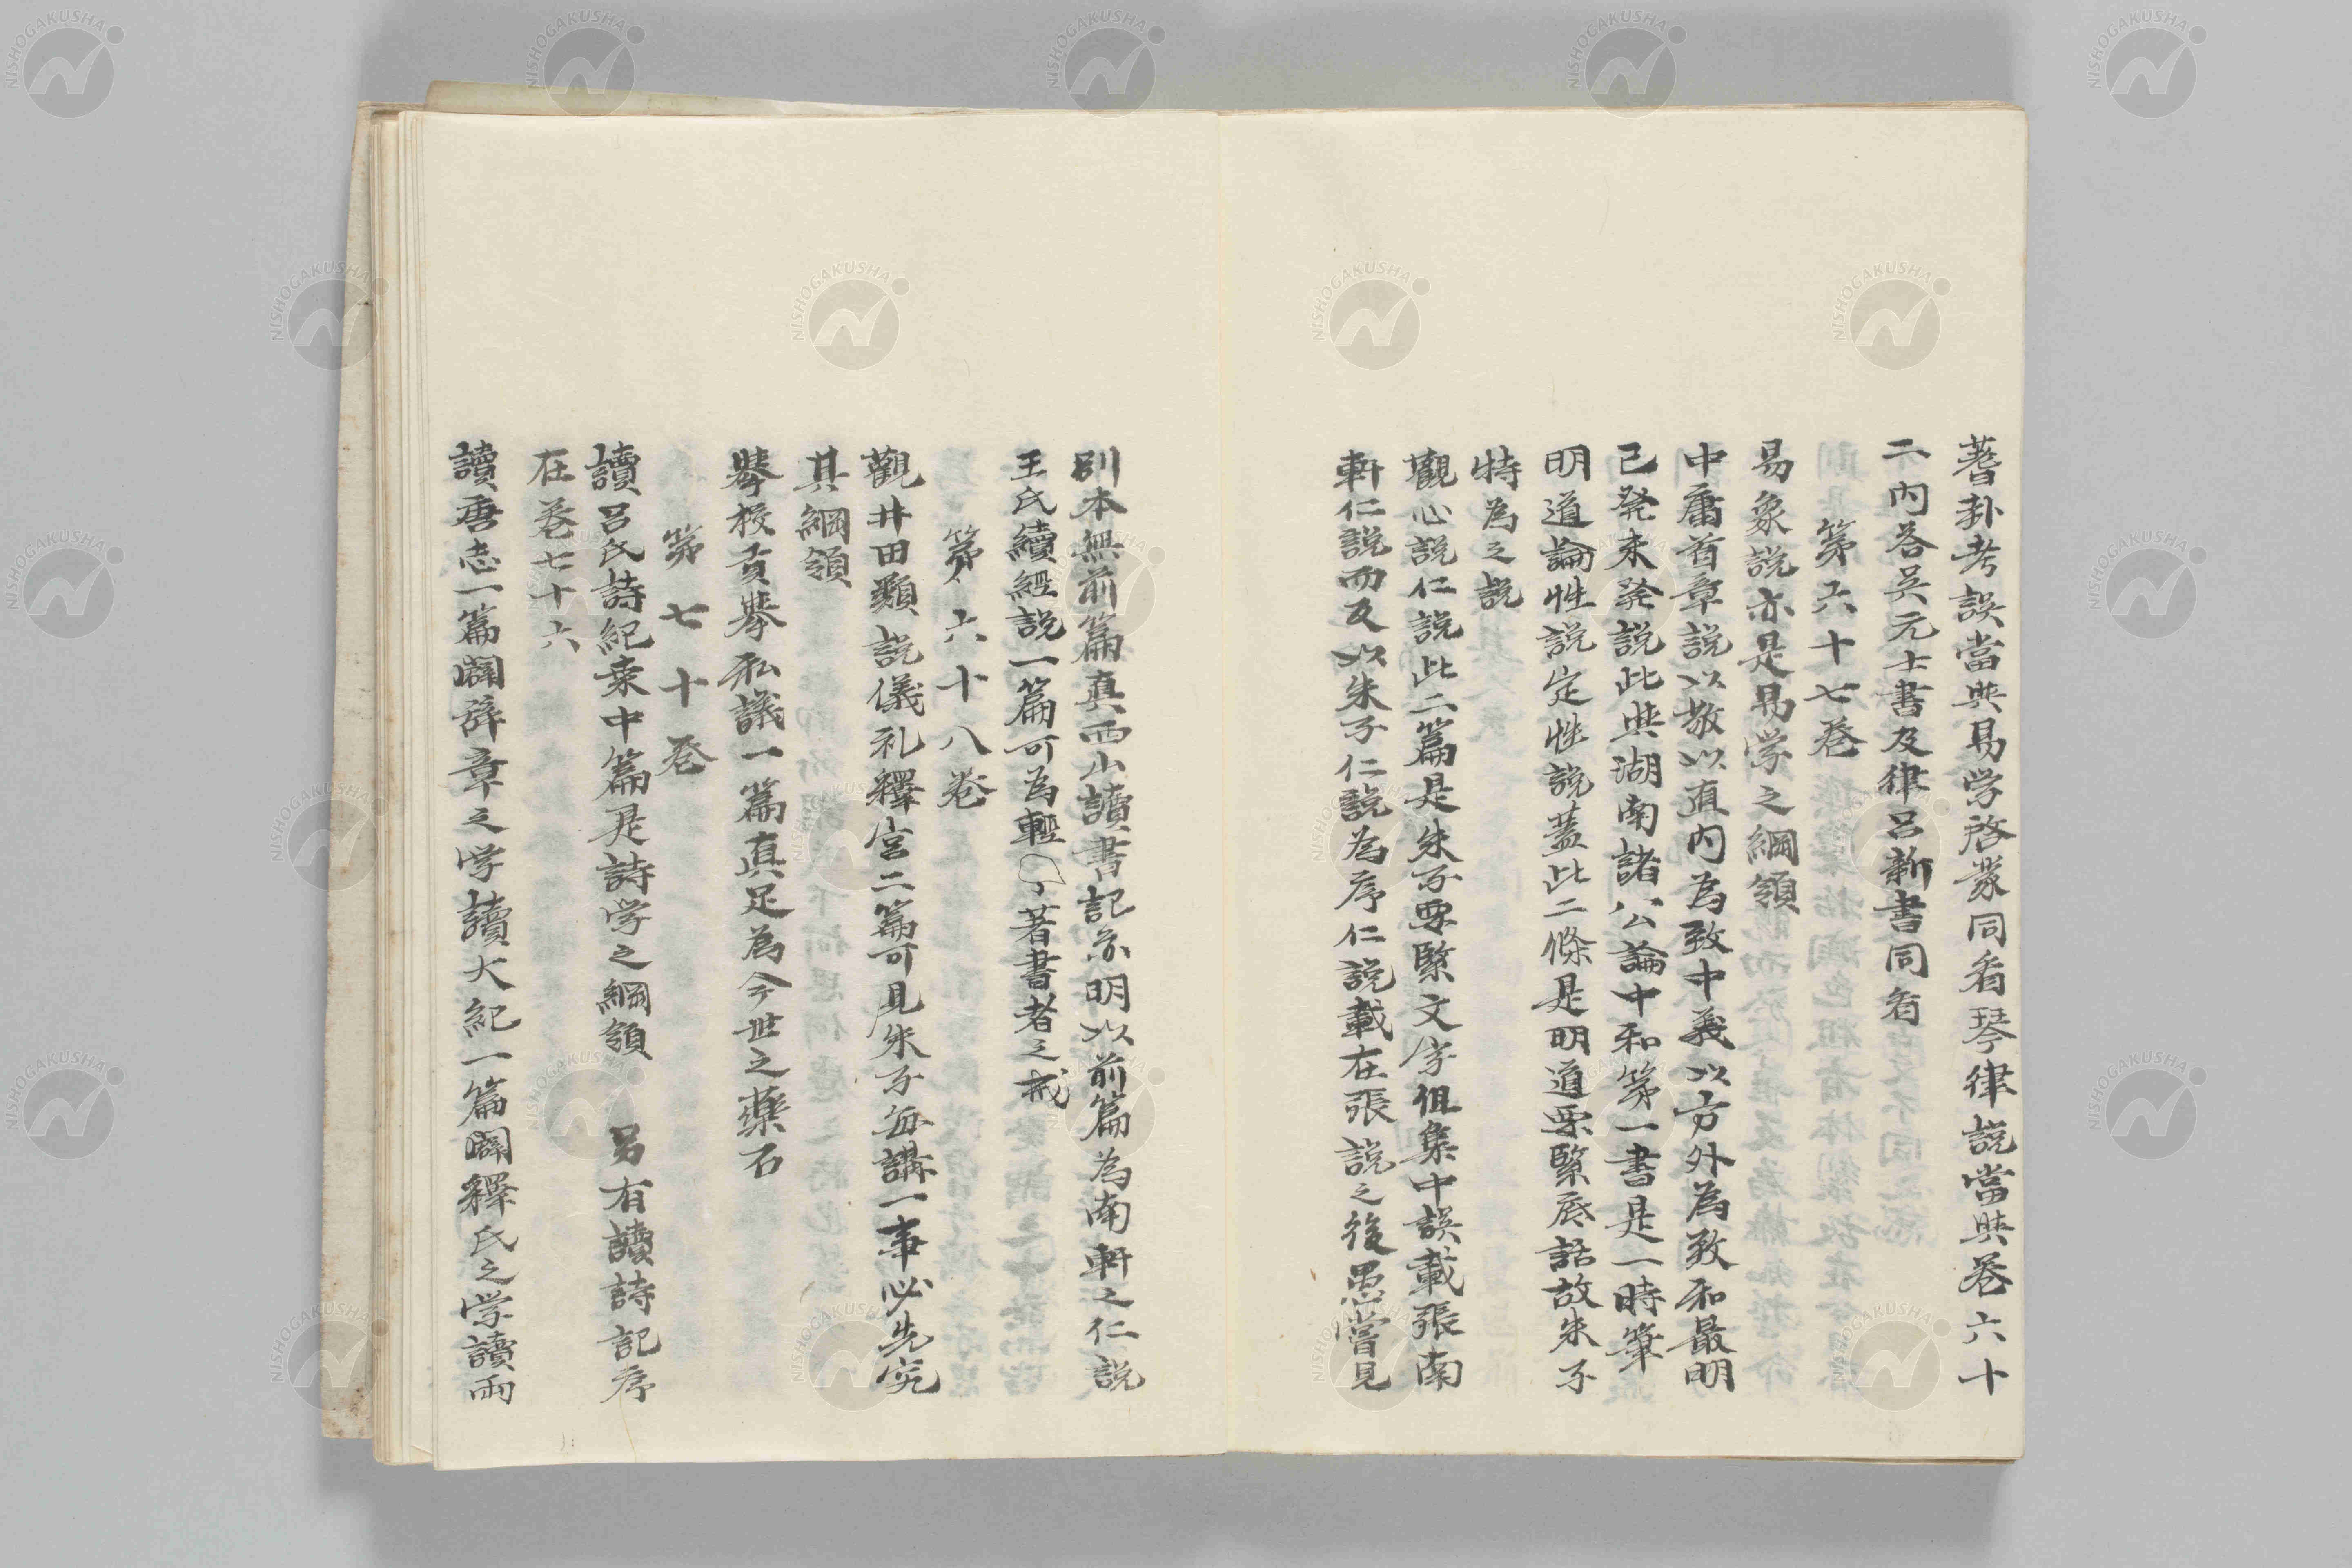 蓍卦考誤當与易学啓蒙同看琴律説當与巻六十
二内荅吴元士書及律呂新書同看
第六十七巻
易象説亦是易学之綱領
中庸首章説以敬以直内為致中義以方外為致和最明
已発未発説此与湖南諸公論中和第一書是一時筆
明道論性説定性説蓋此二條是明道要緊底話故朱子
特為之説
觀心説仁説此二篇是朱子要緊文字但集中誤載張南
軒仁説而反以朱子仁説為序仁説載在張説之後愚嘗見
別本無前篇真西山讀書記亦明以前篇為南軒之仁説
王氏續經説一篇可為輕了著書者之戒
第六十八巻
觀井田類説儀礼釋宮二篇可見朱子毎講一事必先究
其綱領
學校貢挙私議一篇真足為今世之薬石
第七十巻
讀呂氏詩紀桒中篇是詩学之綱領 另有讀詩記序
在巻七十六
讀唐志一篇闢辞章之学讀大紀一篇闢釋氏之学讀両